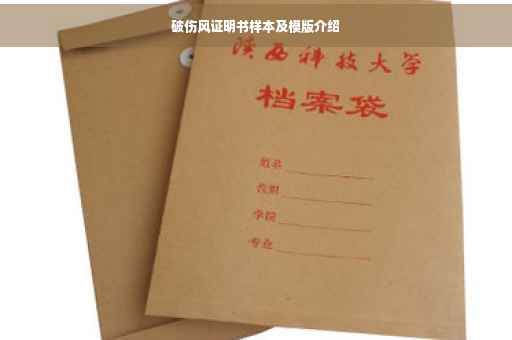 破伤风证明书样本及模版介绍
陕西科技大学
档案袋
学院
专业